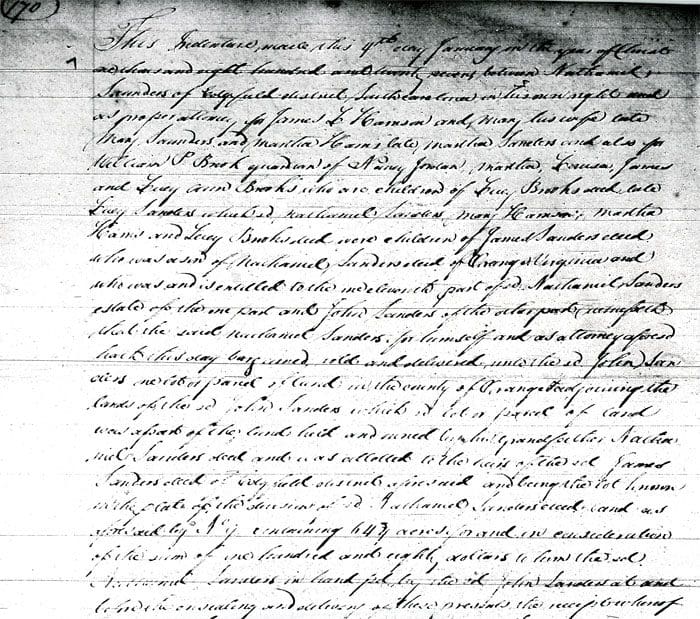 170
This Indenture made this 9th day January in the year of Christ
a thousand eight hundred and twenty seven between Nathaniel
Saunders of Edgefield district South carolina in his own right and
as proper attorney for James L Harrison and Mary his wife late
Mary Saunders and Martha Harris late Martha Sanders and also for
William P Brooks guardian of Nancy Jordan, Martha, Louisa, James
and Lucy Ann Brooks who are children of Lucy Brooks decd late
Lucy Sanders which sd Nathaniel Sanders, Mary Harrison, Martha
Harris and Lucy Brooks decd were children of James Sanders decd
who was a son of Nathaniel Sanders decd of Orange Virginia and
who was and is entitled to the part of sd Nathaniel Sanders
estate of the one part and John Sanders of the other part witnesseth
that the said Nathaniel Sanders for himself and as attorney aforesd
hath this day bargained, sold and delivered unto the sd John San
ders one lot or parcel of land in the county of Orange adjoining the
lands of the sd John Sanders which sd lot or parcel of land
was a part of the land held and owned by his Grandfather Natha
niel Sanders decd and was allotted to the heirs of the sd James
Sanders decd of Edgefield district aforesaid and being the lot known
in the plat of the division of sd Nathaniel Sanders decd land as
aforesaid by No 7 containing 64 3/4 acres for and in consideration
of the sum of one hundred and eighty dollars to him the sd
Nathaniel Sanders in hand pd by the sd John Sanders at and
before the ensealing and delivery of these presents the receipt whereof